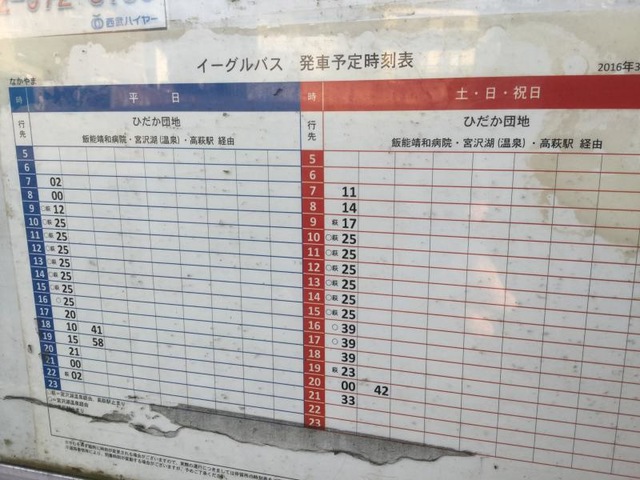 西武ハイヤー
イーグルバス 発車予定時刻表
なかやま
2016年3
時 平日
行先 ひだか団地
飯能靖和病院・宮沢湖(温泉)・高萩駅 経由
5
6
7 02
8 00
9 ○萩12
10 ○萩25
11 ○萩25
12 ○萩25
13 ○萩25
14 ○萩25
15 ○萩25
16 ○25
17 20
18 10 41
19 15 58
20 21
21 00
22 萩02
23
時 土・日・祝日
行先 ひだか団地
飯能靖和病院・宮沢湖(温泉)・高萩駅 経由
5
6
7 11
8 14
9 萩17
10 ○萩25
11 ○萩25
12 ○萩25
13 ○萩25
14 ○萩25
15 ○萩25
16 ○39
17 ○39
18 39
19 萩23
20 00 42
21 33
22
23
○=宮沢湖温泉経由